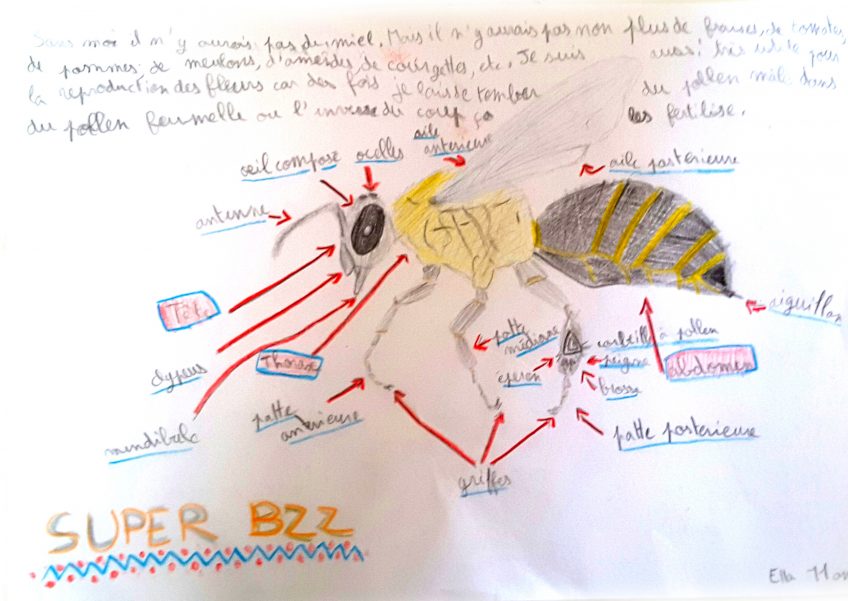 Sans moi il n'y aurais pas de miel. Mais il n'y aurais pas non plus de fraises, de tomates,
de pommes, de melons, d'amendes, de courgettes, etc. Je suis aussi très utile pour
la reproduction des fleurs car des fois je laisse tomber du pollen mâle dans
du pollen foumelle ou l'inverse du coup ça les fertilise.
aile
antérieure
œil composé ocelles
aile postérieure
antenne
Tête
aiguillon
patte
médiane
corbeille à pollen
Thorax
peigne
Abdomen
clypeus
éperon
brosse
patte
antérieure
mendibule
patte posterieure
griffes
SUPER BZZ
Ella